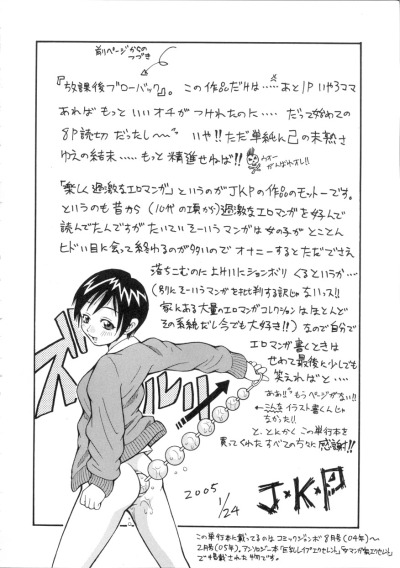 前ページからの
つづき
『放課後ブローバック』。この作品だけは……あと1Pいや3コマ
あればもっといいオチがつけれたのに…… だって始めての
8P読切だったし〜〜 いや!!ただ単純に己の未熟さ
ゆえの結末……もっと精進せねば!!
がんばれオレ!!
「楽しく過激なエロマンガ」というのがJKPの作品のモットーです。
というのも昔から(10代の頃から)過激なエロマンガを好んで
読んでたんですがたいていそーいうマンガは女の子がとことん
ヒドい目に会って終わるのが多いのでオナニーするとただでさえ
落ちこむのによけいにションボリくるというか…
(別にそーいうマンガを批判する訳じゃないっス!!
家にある大量のエロマンガコレクションはほとんど
その系統だし今でも大好き!!)なので自分で
エロマンガ書くときは
せめて最後に少しでも
笑えればと…
ああ!!もうページがない!!
←こんなイラスト書くんじゃ
なかった!!
と、とにかくこの単行本を
買ってくれたすべての方々に感謝!!
ズルルッ
2005
1/24
J・K・P
この単行本に載ってるのはコミックジャンボ8月号(04年)〜
2月号(05年)、アンソロジー本
で掲載された物です。